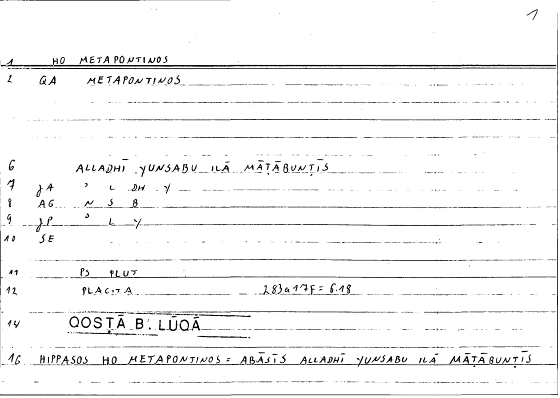 1
1 HO METAPONTINOS
2 QA METAPONTINOS
6 ALLADHĪ YUNSABU ILĀ MĀṬĀBUNṬĪS
7 JA ʾ L DH Y
8 AG N S B
9 JP ʾ L Y
10 SE
11 PS PLUT
12 PLACITA 283a17F = 6.18
14 QOSṬĀ B. LŪQĀ
16 HIPPASOS HO METAPONTINOS = ABĀSĪS ALLADHĪ YUNSABU ILĀ MĀṬĀBUNṬĪS